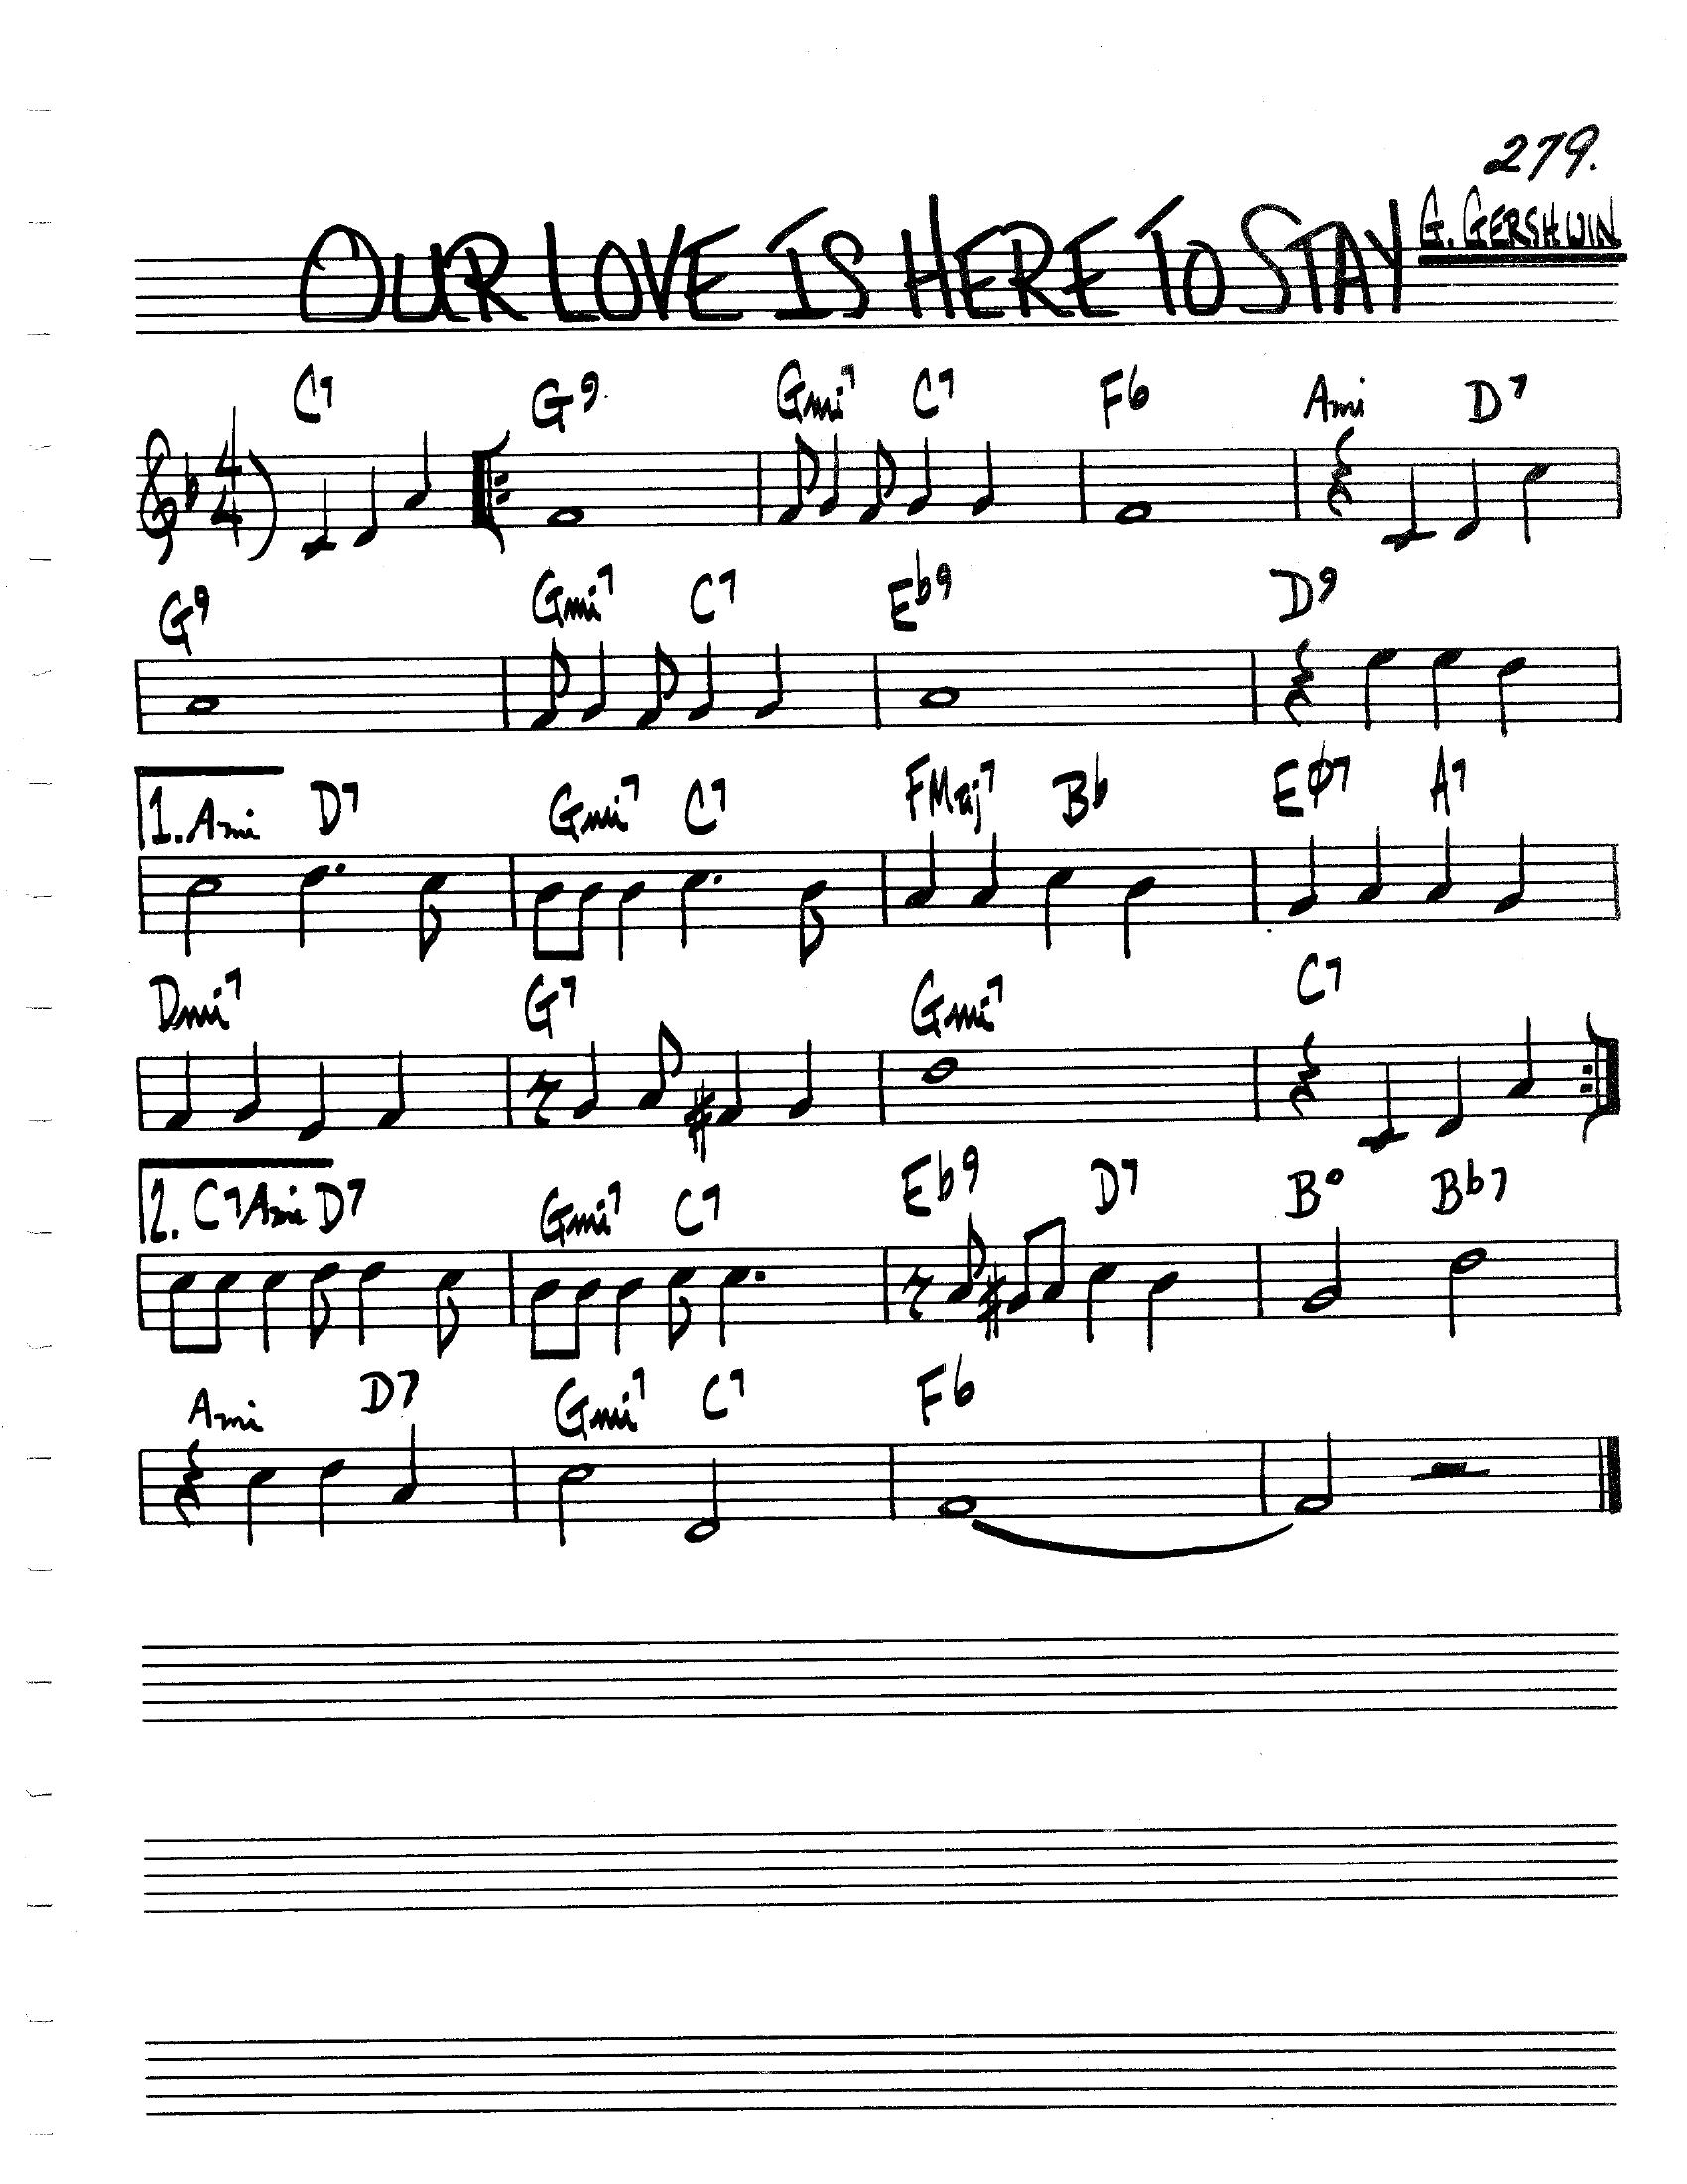 279.
OUR LOVE IS HERE TO STAY G. GERSHWIN
C7 G9. Gmi7 C7 F6 Ami D7
4
4
G9 Gmi7 C7 Eb9 D9
1. Ami D7 Gmi7 C7 FMaj7 Bb Eø7 A7
Dmi7 G7 Gmi7 C7
2. C7 Ami D7 Gmi7 C7 Eb9 D7 B° Bb7
Ami D7 Gmi7 C7 F6